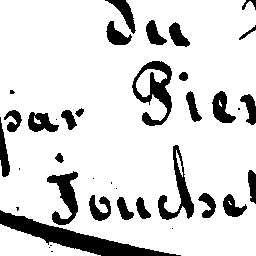 du
par Pier
Jouche